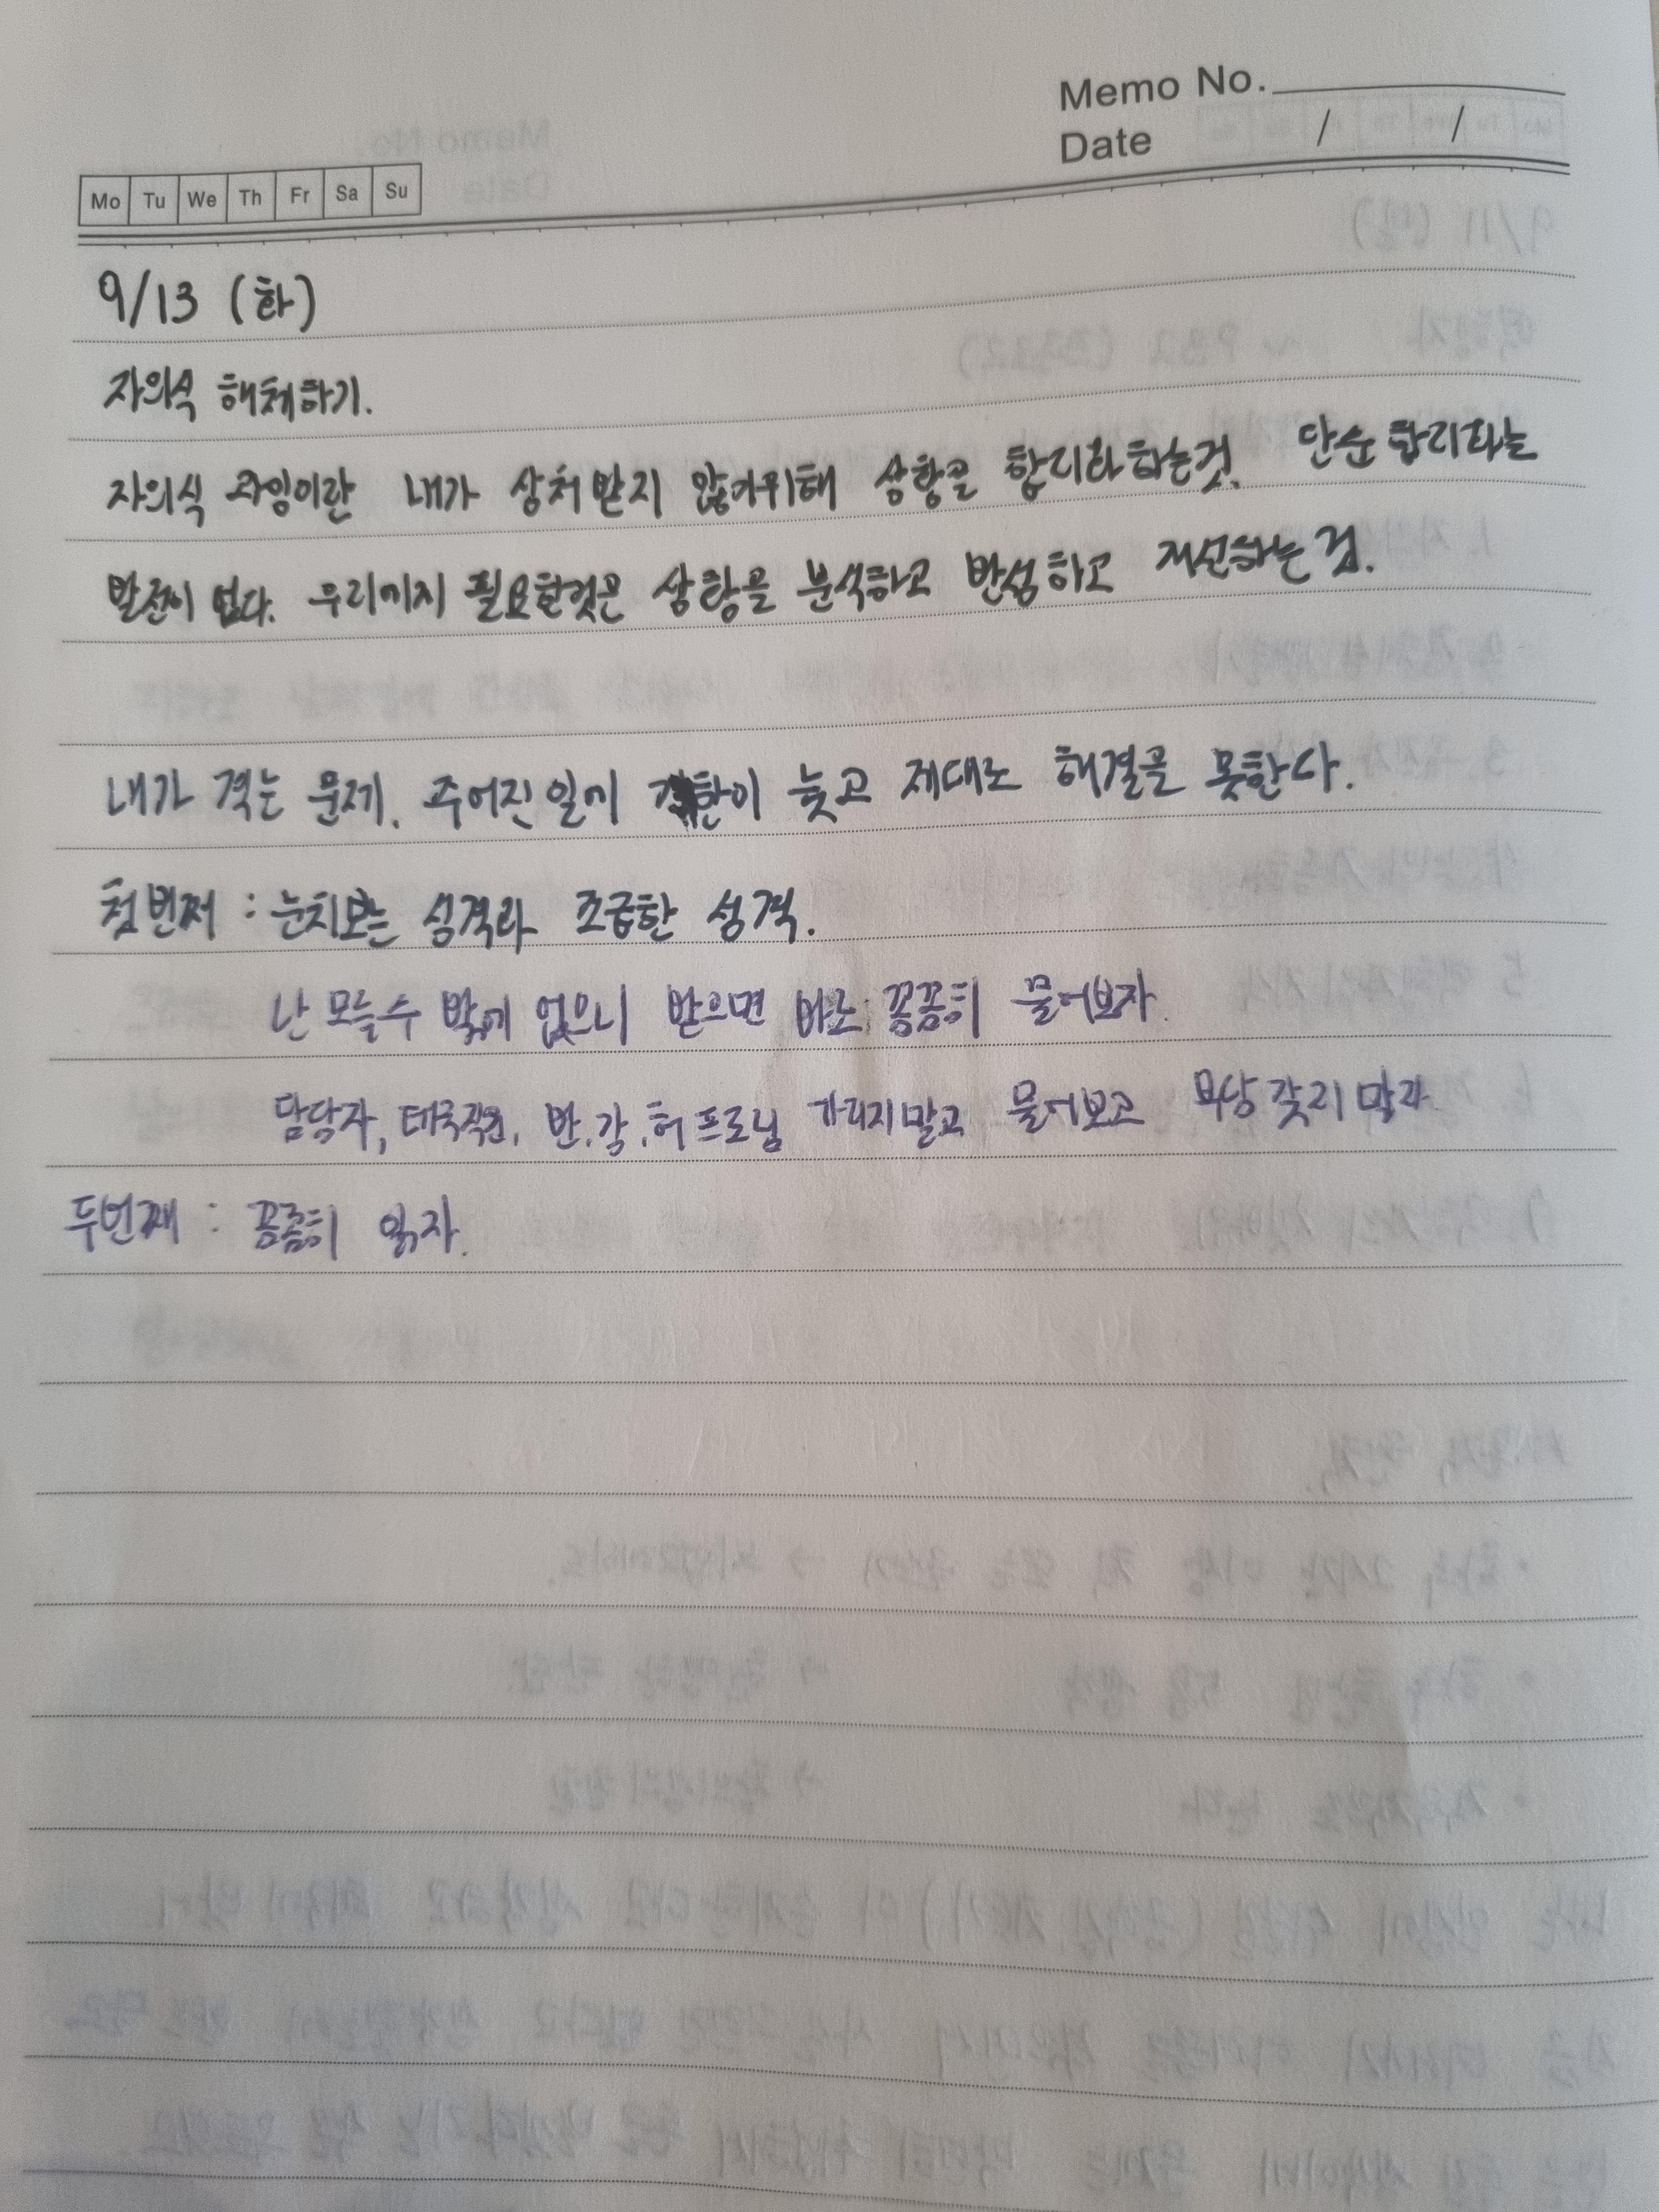 Memo No.
Date / /
Mo Tu We Th Fr Sa Su
9/13 (화)
자의식 해체하기.
자의식 과잉이란 내가 상처받지 않기위해 상황을 합리화하는것. 단순 합리화는
발전이 없다. 우리에게 필요한것은 상황을 분석하고 반성하고 개선하는 것.
내가 겪는 문제. 주어진 일에 기한이 늦고 제대로 해결을 못한다.
첫번째 : 눈치보는 성격과 조급한 성격.
난 모를수 밖에 없으니 받으면 바로 꼼꼼히 물어보자.
담당자, 반.강.허 프로님 가리지말고 물어보고 갖지 말자
두번째 : 꼼꼼히 읽자.